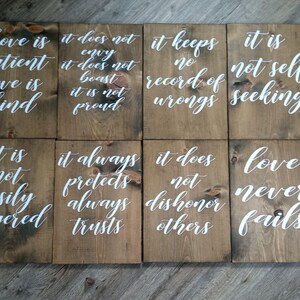 love is
patient
love is
kind
it does not
envy
it does not
boast
it is not
proud
it keeps
no
record of
wrongs
it is
not self
seeking
it is
not
easily
angered
it always
protects
always
trusts
it does
not
dishonor
others
love
never
fails